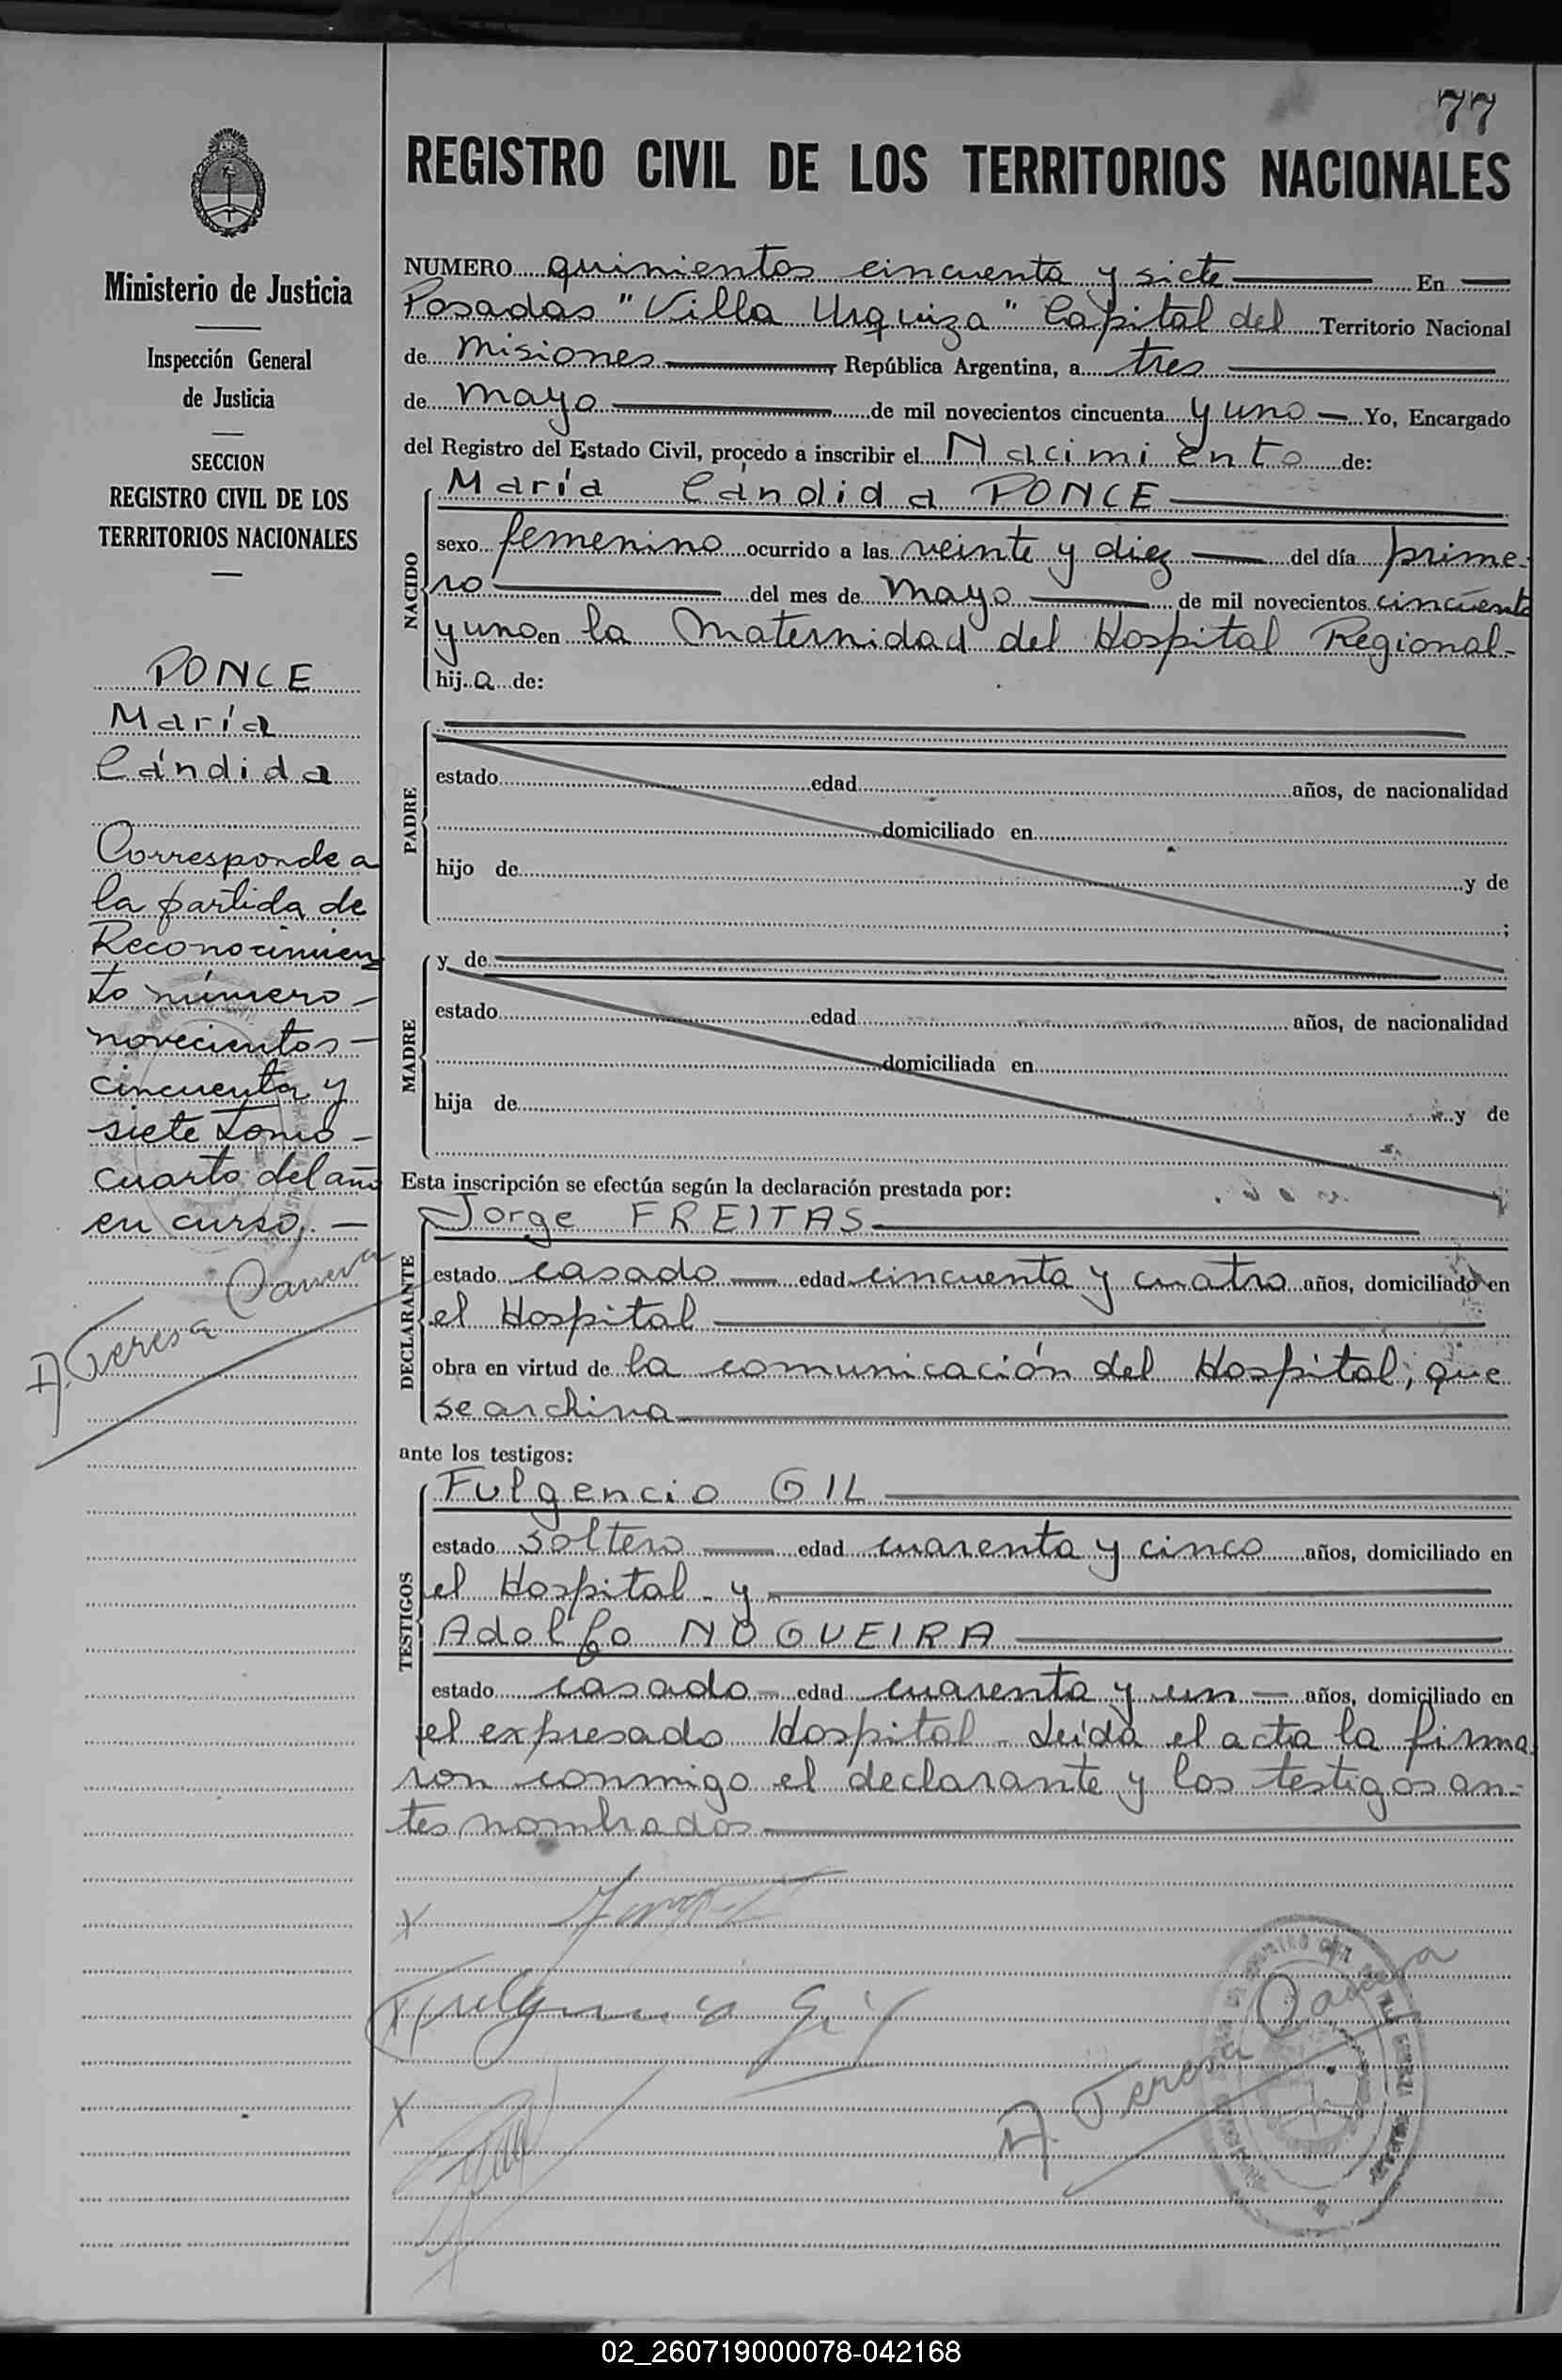 77
REGISTRO CIVIL DE LOS TERRITORIOS NACIONALES
Ministerio de Justicia
Inspección General
de Justicia
SECCION
REGISTRO CIVIL DE LOS
TERRITORIOS NACIONALES
PONCE
María
Cándida
Corresponde a
la partida de
Reconocimien
to número
novecientos
cincuenta y
siete tomo
cuarto del año
en curso.
A. Teresa
NUMERO quinientos cincuenta y siete En
Posadas "Villa Urquiza" Capital del Territorio Nacional
de Misiones, República Argentina, a tres
de mayo de mil novecientos cincuenta y uno Yo, Encargado
del Registro del Estado Civil, procedo a inscribir el Nacimiento de:
María Cándida PONCE
NACIDO
sexo femenino ocurrido a las veinte y diez del día prime-
ro del mes de mayo de mil novecientos cincuenta
y uno en la Maternidad del Hospital Regional-
hij a de:
PADRE
estado edad años, de nacionalidad
domiciliado en
hijo de y de
;
MADRE
y de
estado edad años, de nacionalidad
domiciliada en
hija de y de
Esta inscripción se efectúa según la declaración prestada por:
Jorge FREITAS
DECLARANTE
estado casado edad cincuenta y cuatro años, domiciliado en
el Hospital
obra en virtud de la comunicación del Hospital, que
se archiva
ante los testigos:
Fulgencio GIL
TESTIGOS
estado soltero edad cuarenta y cinco años, domiciliado en
el Hospital - y
Adolfo NOGUEIRA
estado casado edad cuarenta y un años, domiciliado en
el expresado Hospital - Leída el acta la firma
ron conmigo el declarante y los testigos an-
tes nombrados
x
x Fulgencio Gil
x
A. Teresa
02_260719000078-042168